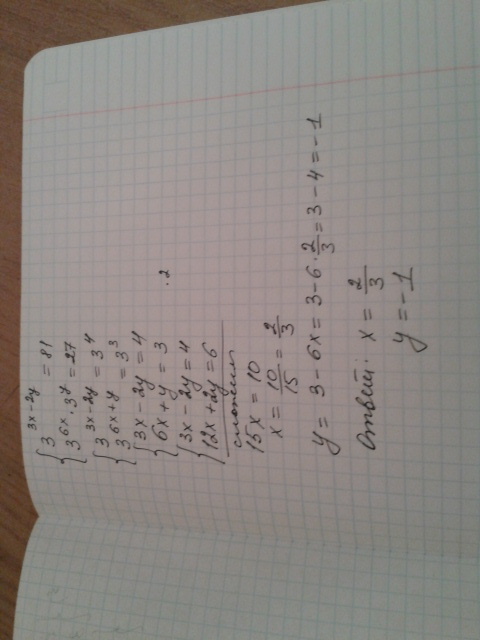 { 3^(3x-2y) = 81
{ 3^(6x) · 3^y = 27
{ 3^(3x-2y) = 3^4
{ 3^(6x+y) = 3^3
{ 3x - 2y = 4
{ 6x + y = 3 · 2
{ 3x - 2y = 4
{ 12x + 2y = 6
сложим
15x = 10
x = 10/15 = 2/3
y = 3 - 6x = 3 - 6 · 2/3 = 3 - 4 = -1
Ответ: x = 2/3
y = -1